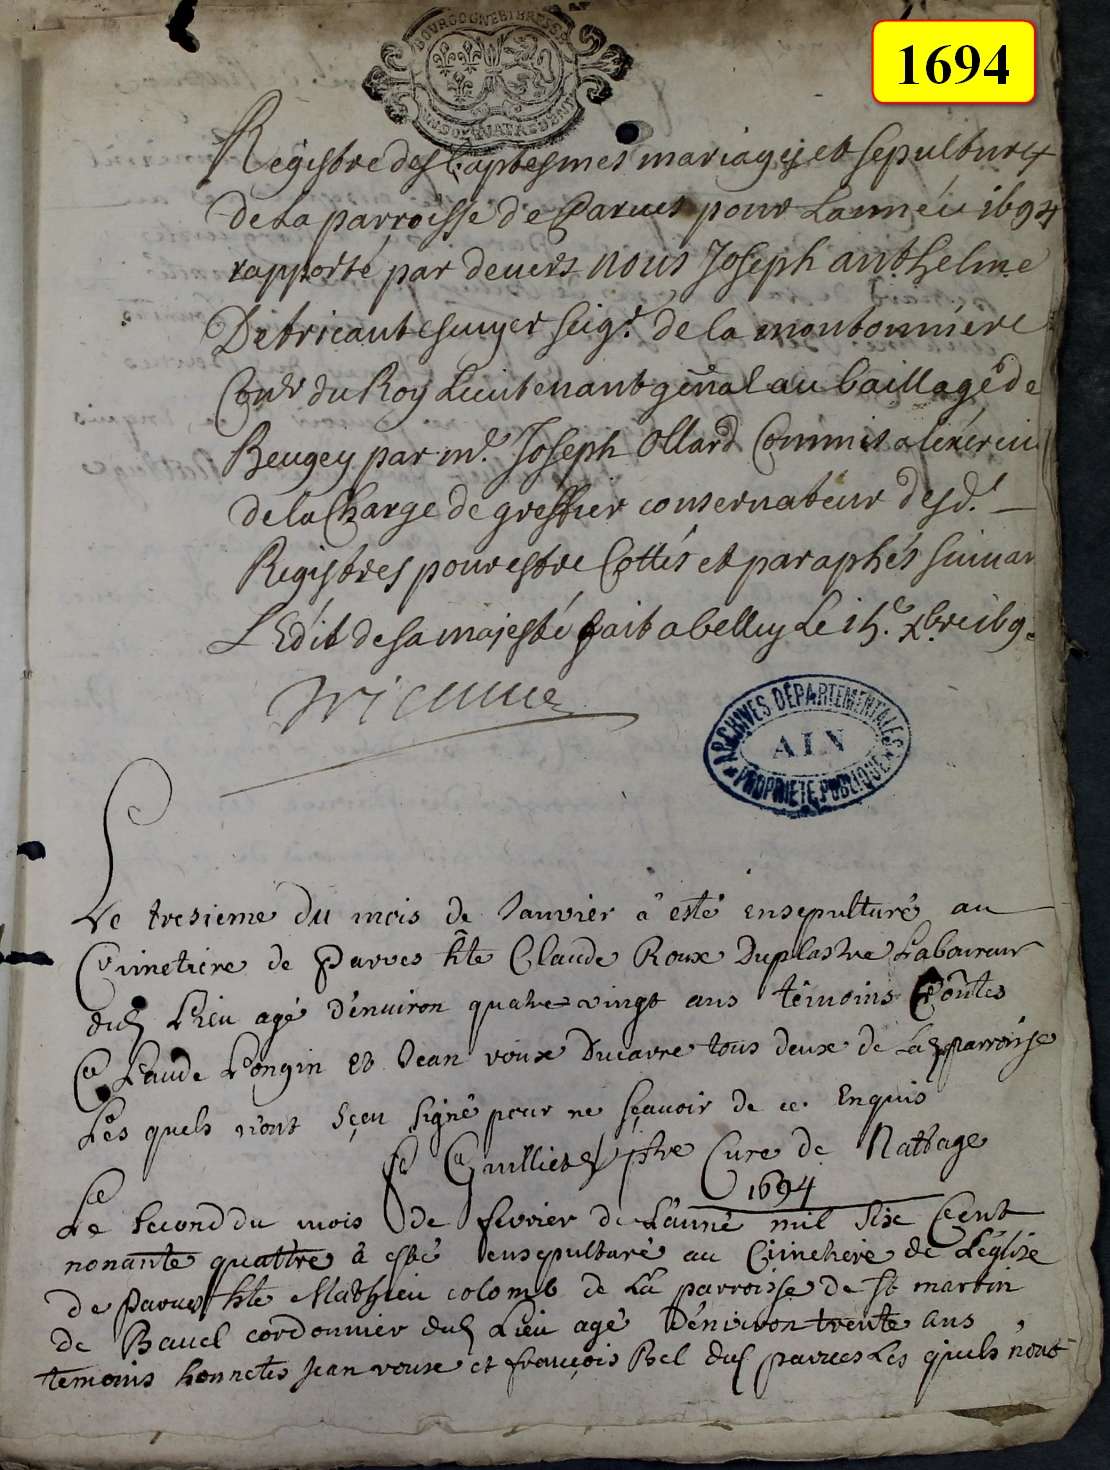 1694
BOURGOGNE ET BRESSE
Registre des baptesmes mariages et sepultures
de la parroisse de Parves pour Lannéé 1694
rapporté par devers nous Joseph anthelme
Detricaut escuyer seigr. de la montonniere
Conr du Roy Lieutenant gnal au baillage de
Beugey par me. Joseph Ollard Commis a lexercice
de la Charge de greffier conservateur desd.
Registres pour estre Cottés et paraphés suivan
LEdit de sa majesté fait a belley Le 15e. xbre 169
ARCHIVES DÉPARTEMENTALES
AIN
PROPRIETE PUBLIQUE
Le tresieme du mois de Janvier a esté ensepulturé au
Cimetiere de Parves hte Claude Roux Duplastre Laboureur
dud Lieu agé d'environ quatre vingt ans temoins honetes
Claude Longin et Jean roux Ducarre tous deux de La parroisse
Les quels n'ont sçeu signé pour ne sçavoir de ce Enquis
ptre Curé de Nattage
1694
Le
Le second du mois de fevrier de L'anné mil six Cent
nonante quattre à esté ensepulturé au Cimetiere de L'eglise
de Parves hte Mathieu colomb de La parroisse de st martin
de Bavel cordonnier dud Lieu agé D'environ trente ans
temoins honnetes Jean roux et françois Bel dud parves Les quels n'ont